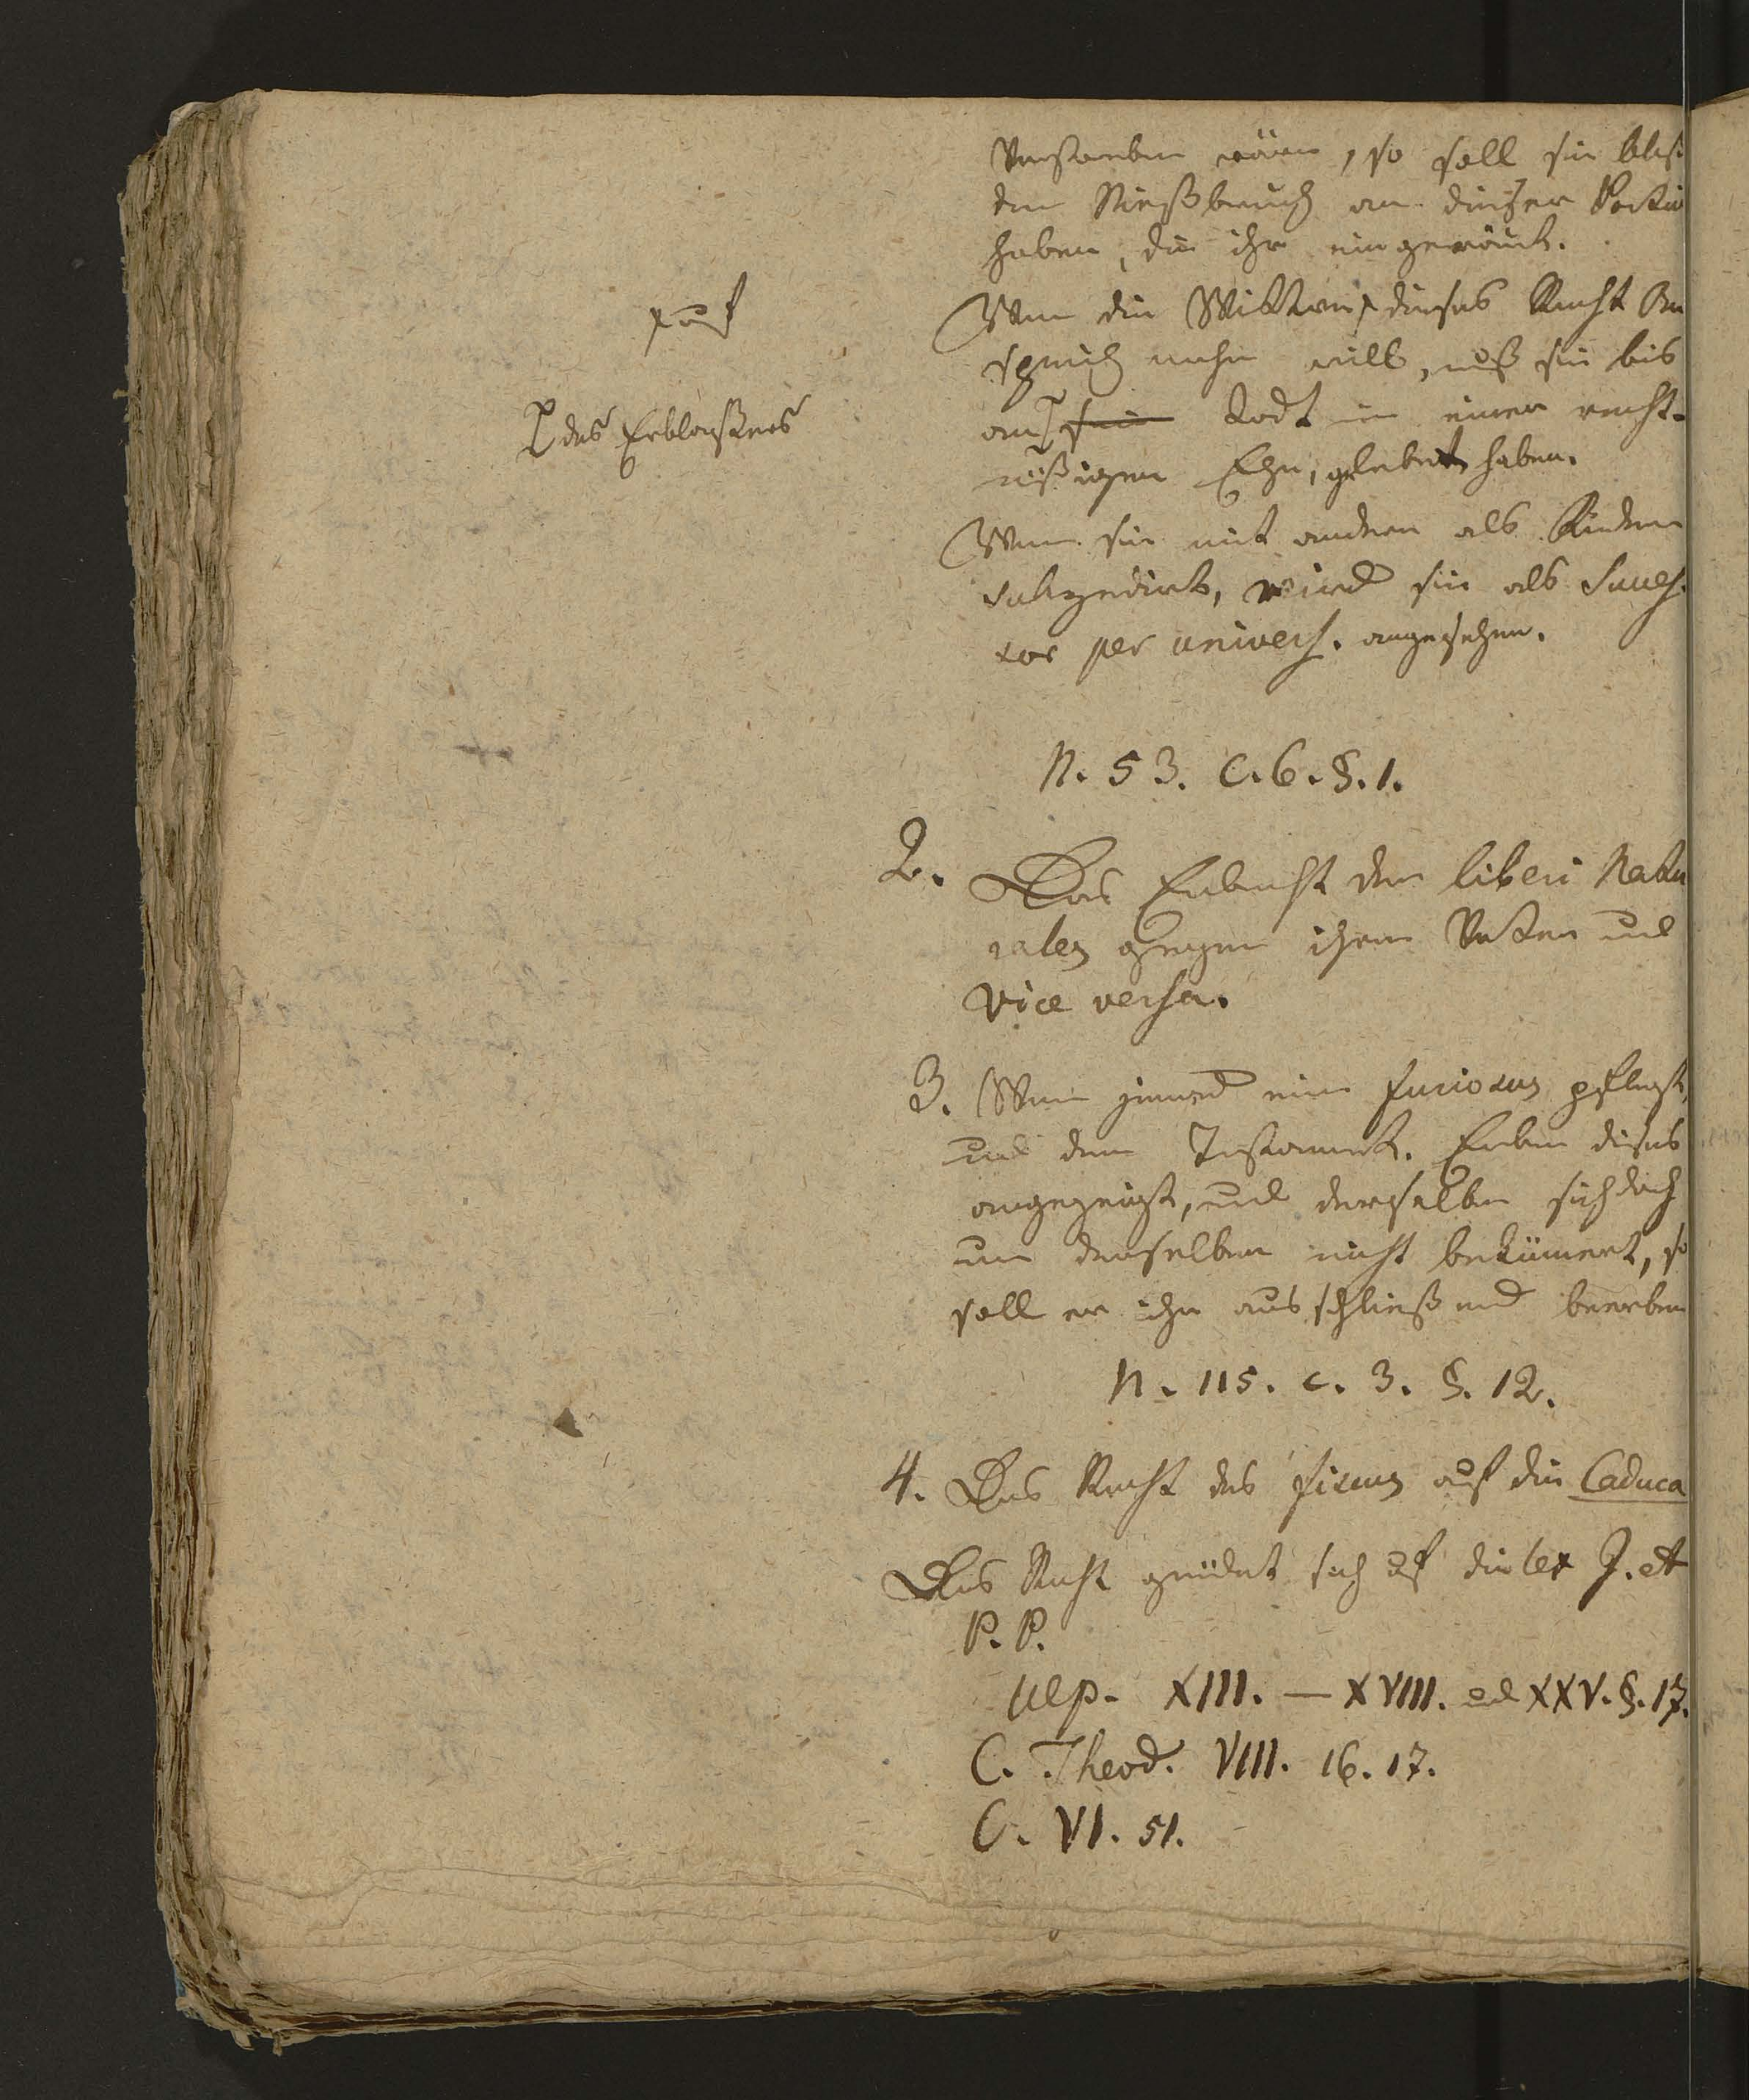 Vorhanden wären, so soll sie bloß
den Nießbrauch an dieser Portio
haben, die ihr eingeräumt.
Wenn die Wittwe ⨯ dieses Recht An
⨯ auf
spruch machen will, muß sie bis
an ⌈ sein Todt in einer recht-
⌈ des Erblassers
mäßigen Ehe, gelebt haben.
Wenn sie mit andern als Kindern
sukzedirt, wird sie als Succes-
sor per univers. angesehen.
N. 53. C. 6. §. 1.
2. Das Erbrecht der liberi Natu
rales gegen ihren Vater und
vice versa.
3. Wenn jemand einen furiosus pflegt,
und dem Testament. Erben dieses
angezeigt, und derselbe sich doch
um denselben nicht bekümert, so
soll er ihn ausschließend beerben
N. 115. c. 3. §. 12.
4. Das Recht des fiscus auf die Caduca
Das Recht gründet sich auf die lex J. et
P. P.
Ulp. XIII. — XVIII. und XXV. §. 17.
C. Theod. VIII. 16. 17.
C. VI. 51.